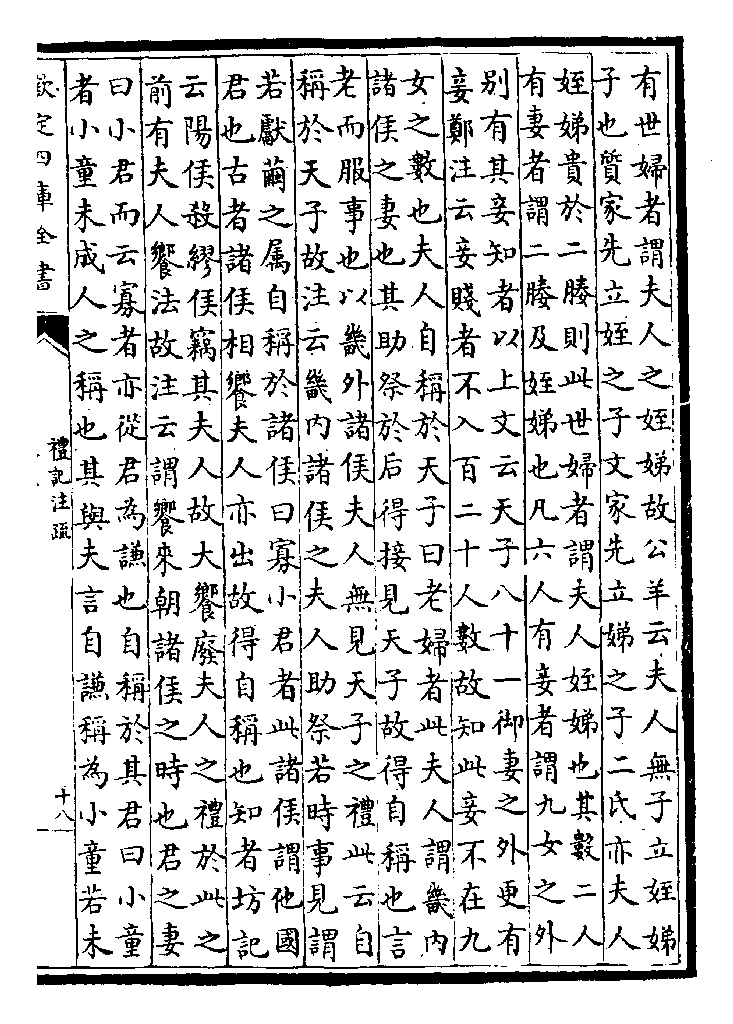 有世婦者謂夫人之姪娣故公羊云夫人無子立姪娣
子也質家先立姪之子文家先立娣之子二氏亦夫人
姪娣貴於二媵則此世婦者謂夫人姪娣也其數二人
有妻者謂二媵及姪娣也凡六人有妾者謂九女之外
別有其妾知者以上文云天子八十一御妻之外更有
妾鄭注云妾賤者不入百二十人數故知此妾不在九
女之數也夫人自稱於天子曰老婦者此夫人謂畿内
諸侯之妻也其助祭於后得接見天子故得自稱也言
老而服事也以畿外諸侯夫人無見天子之禮此云自
稱於天子故注云畿内諸侯之夫人助祭若時事見謂
若獻繭之属自稱於諸侯曰寡小君者此諸侯謂他國
君也古者諸侯相饗夫人亦出故得自稱也知者坊記
云陽侯殺繆侯竊其夫人故大饗廢夫人之禮於此之
前有夫人饗法故注云謂饗來朝諸侯之時也君之妻
曰小君而云寡者亦從君為謙也自稱於其君曰小童
者小童未成人之稱也其與夫言自謙稱為小童若未
欽定四庫全書
禮記注疏
十八